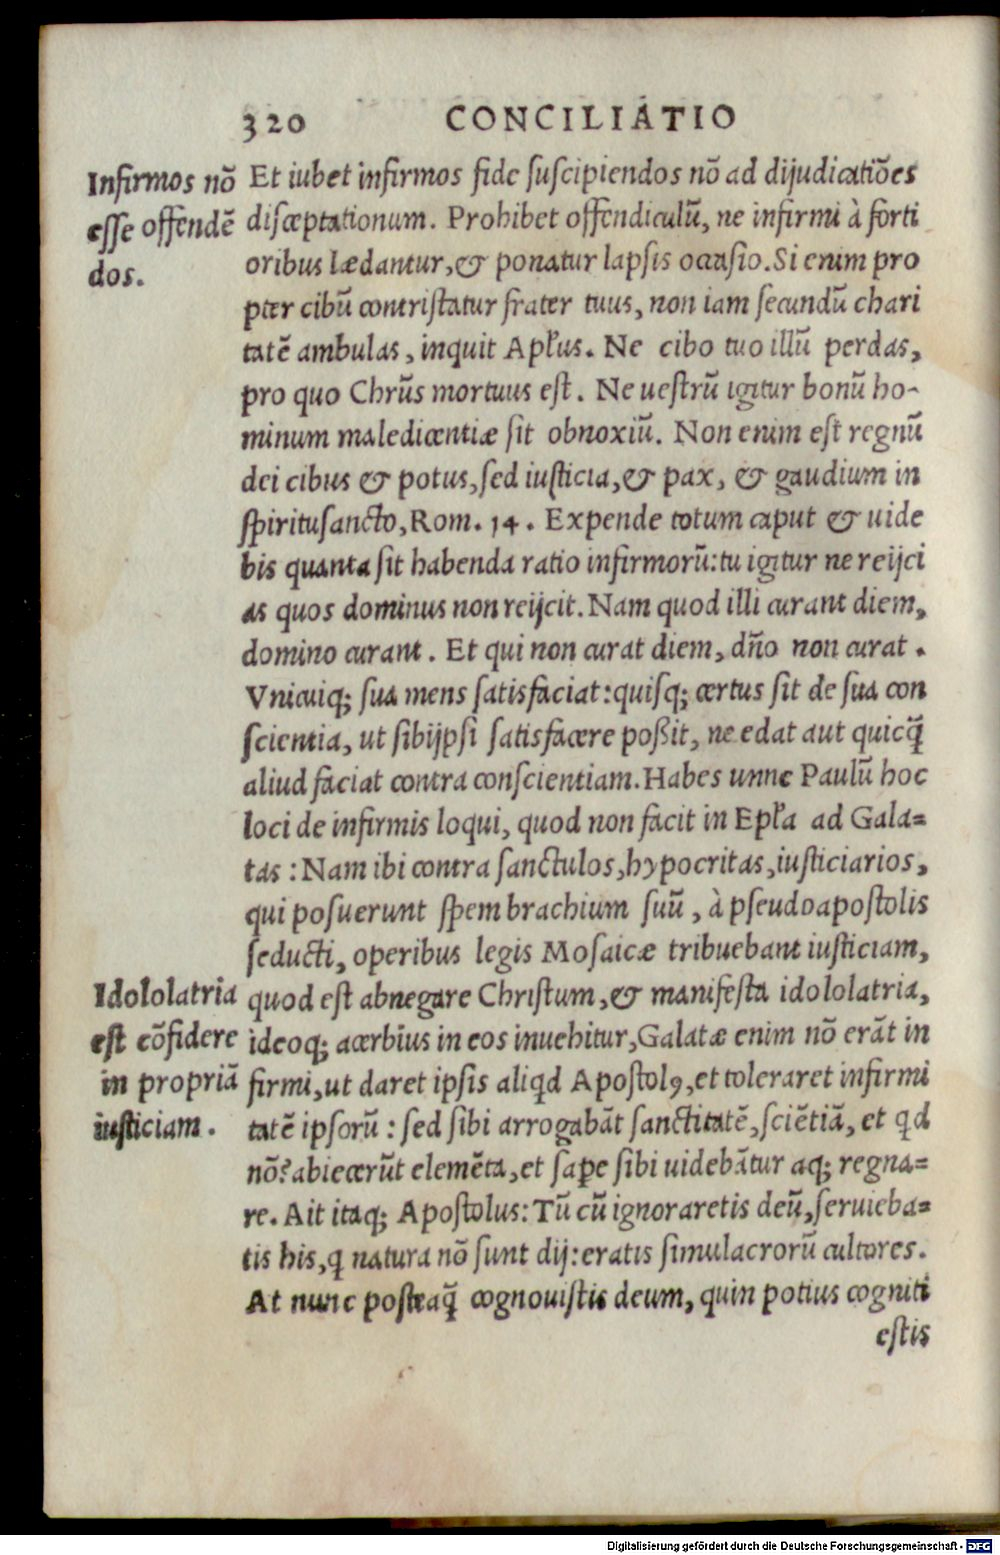 320 CONCILIATIO
Infirmos nō
esse offendē
dos.
Et iubet infirmos fide suscipiendos nō ad dijudicatiōes
disceptationum. Prohibet offendiculū, ne infirmi à forti
oribus lædantur, & ponatur lapsis occasio. Si enim pro
pter cibū contristatur frater tuus, non iam secundū chari
tatē ambulas, inquit Apłus. Ne cibo tuo illū perdas,
pro quo Chrūs mortuus est. Ne uestrū igitur bonū ho-
minum maledicentiæ sit obnoxiū. Non enim est regnū
dei cibus & potus, sed iusticia, & pax, & gaudium in
spiritusancto, Rom. 14. Expende totum caput & uide
bis quanta sit habenda ratio infirmorū: tu igitur ne reijci
as quos dominus non reijcit. Nam quod illi curant diem,
domino curant. Et qui non curat diem, dño non curat.
Vnicuiq; sua mens satisfaciat: quisq; certus sit de sua con
scientia, ut sibijpsi satisfacere poßit, ne edat aut quicq̃
aliud faciat contra conscientiam. Habes unne Paulū hoc
loci de infirmis loqui, quod non facit in Epła ad Gala=
tas: Nam ibi contra sanctulos, hypocritas, iusticiarios,
qui posuerunt spem brachium suū, à pseudoapostolis
seducti, operibus legis Mosaicæ tribuebant iusticiam,
quod est abnegare Christum, & manifesta idololatria,
ideoq; acerbius in eos inuehitur, Galatæ enim nō erāt in
firmi, ut daret ipsis aliqd Apostolꝰ, et toleraret infirmi
tatē ipsorū: sed sibi arrogabāt sanctitatē, sciētiā, et qd
nō? abiecerūt elemēta, et sape sibi uidebātur aq; regna=
re. Ait itaq; Apostolus: Tū cū ignoraretis deū, seruieba=
tis his, q natura nō sunt dij: eratis simulacrorū cultores.
At nunc posteaq̃ cognouistis deum, quin potius cogniti
estis
Idololatria
est cōfidere
in propriā
iusticiam.
Digitalisierung gefördert durch die Deutsche Forschungsgemeinschaft - DFG